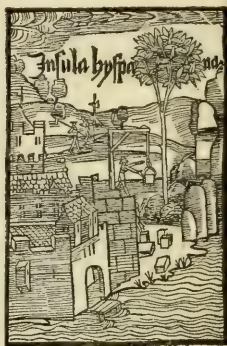 Insula hyspa na